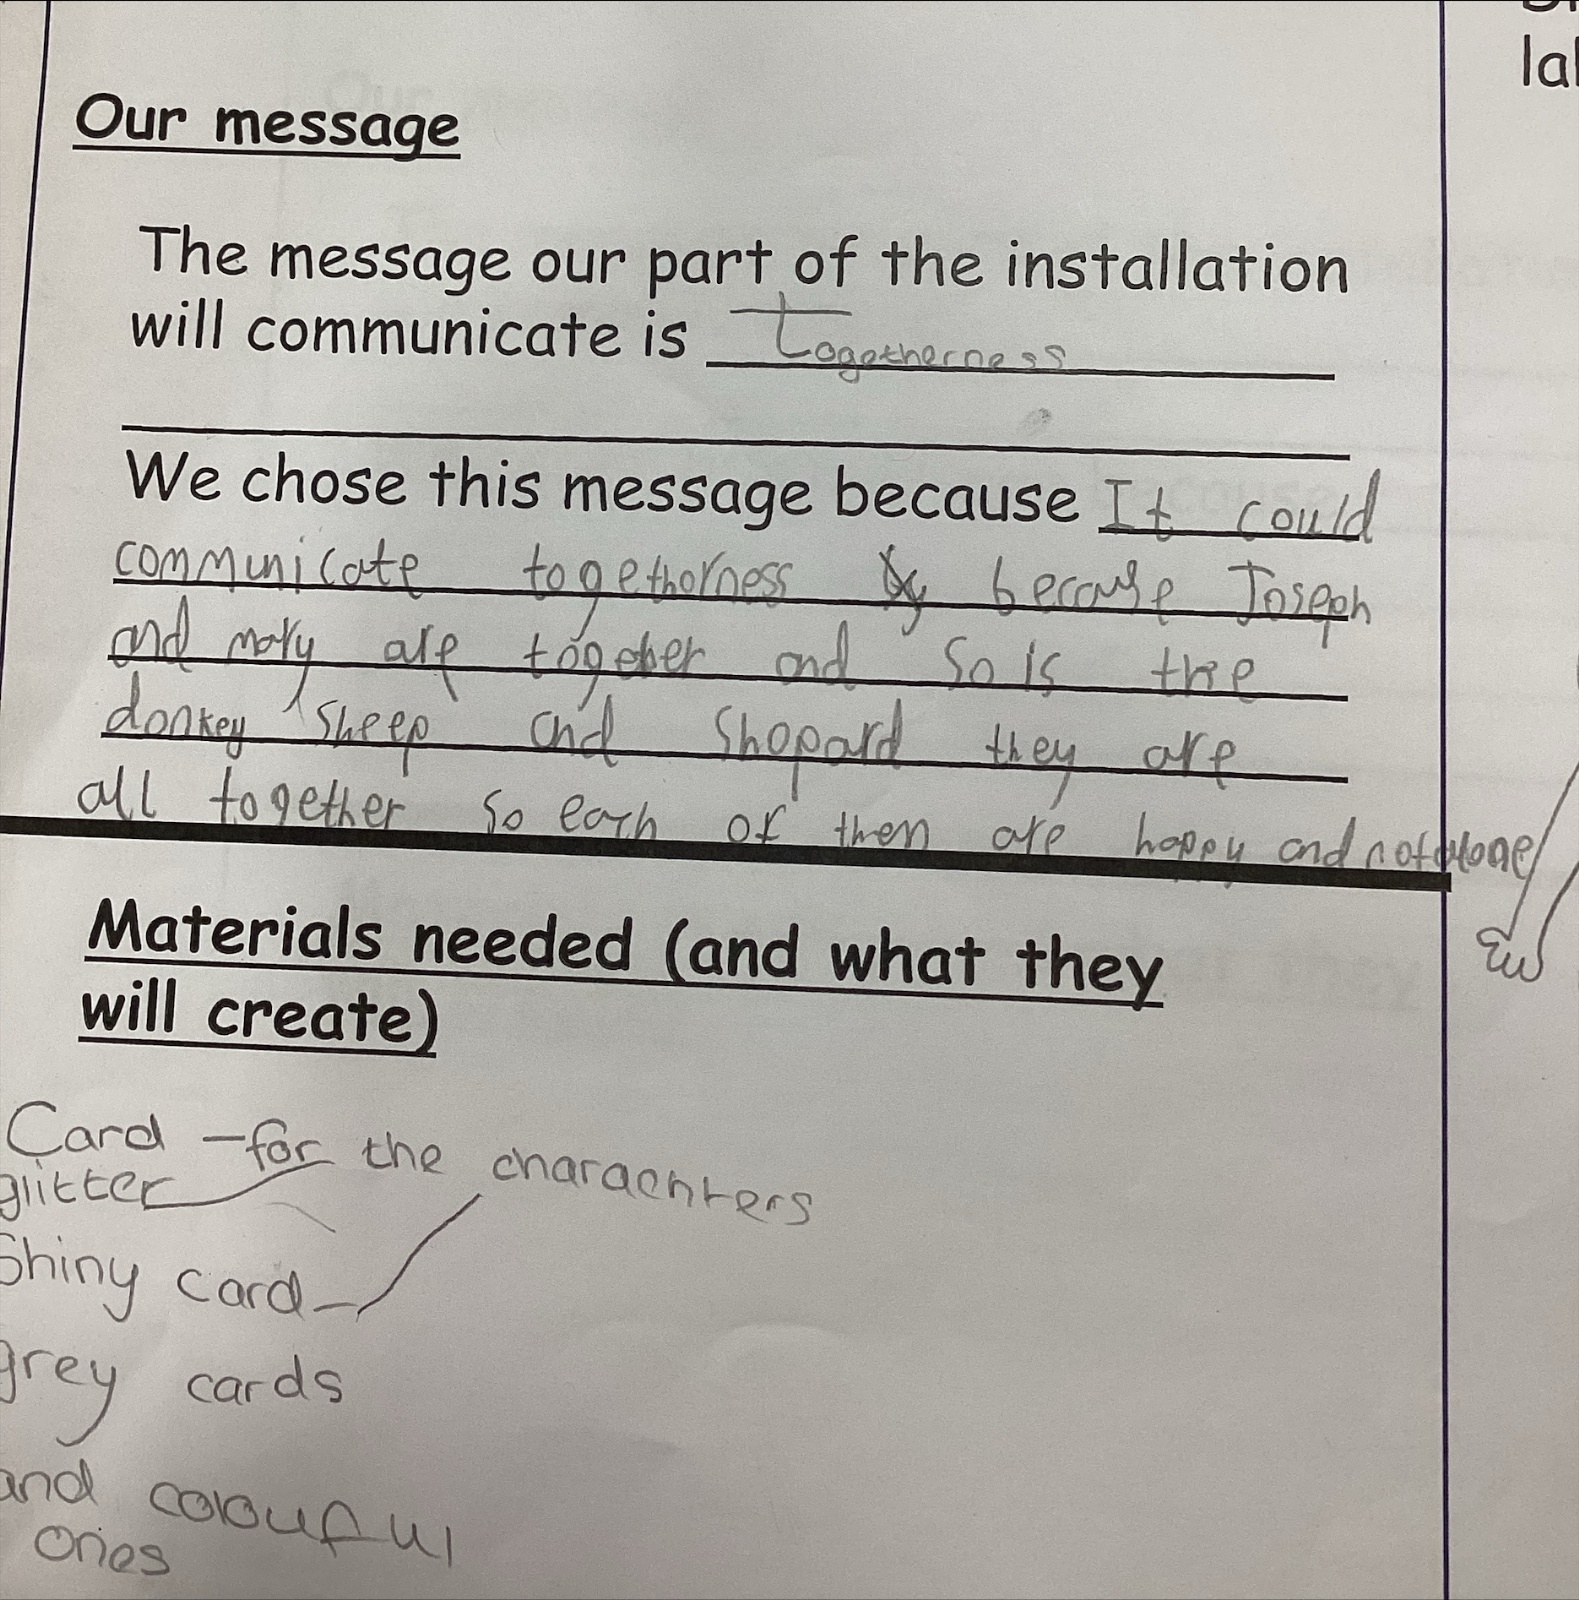 Our message
The message our part of the installation
will communicate is Togetherness
We chose this message because It could
communicate togetherness because Joseph
and mary are together and So is the
donkey sheep and Shopard they are
all together so each of them are happy and not alone
Materials needed (and what they
will create)
Card - for the charachters
glitter
Shiny card
grey cards
and colouful
ones